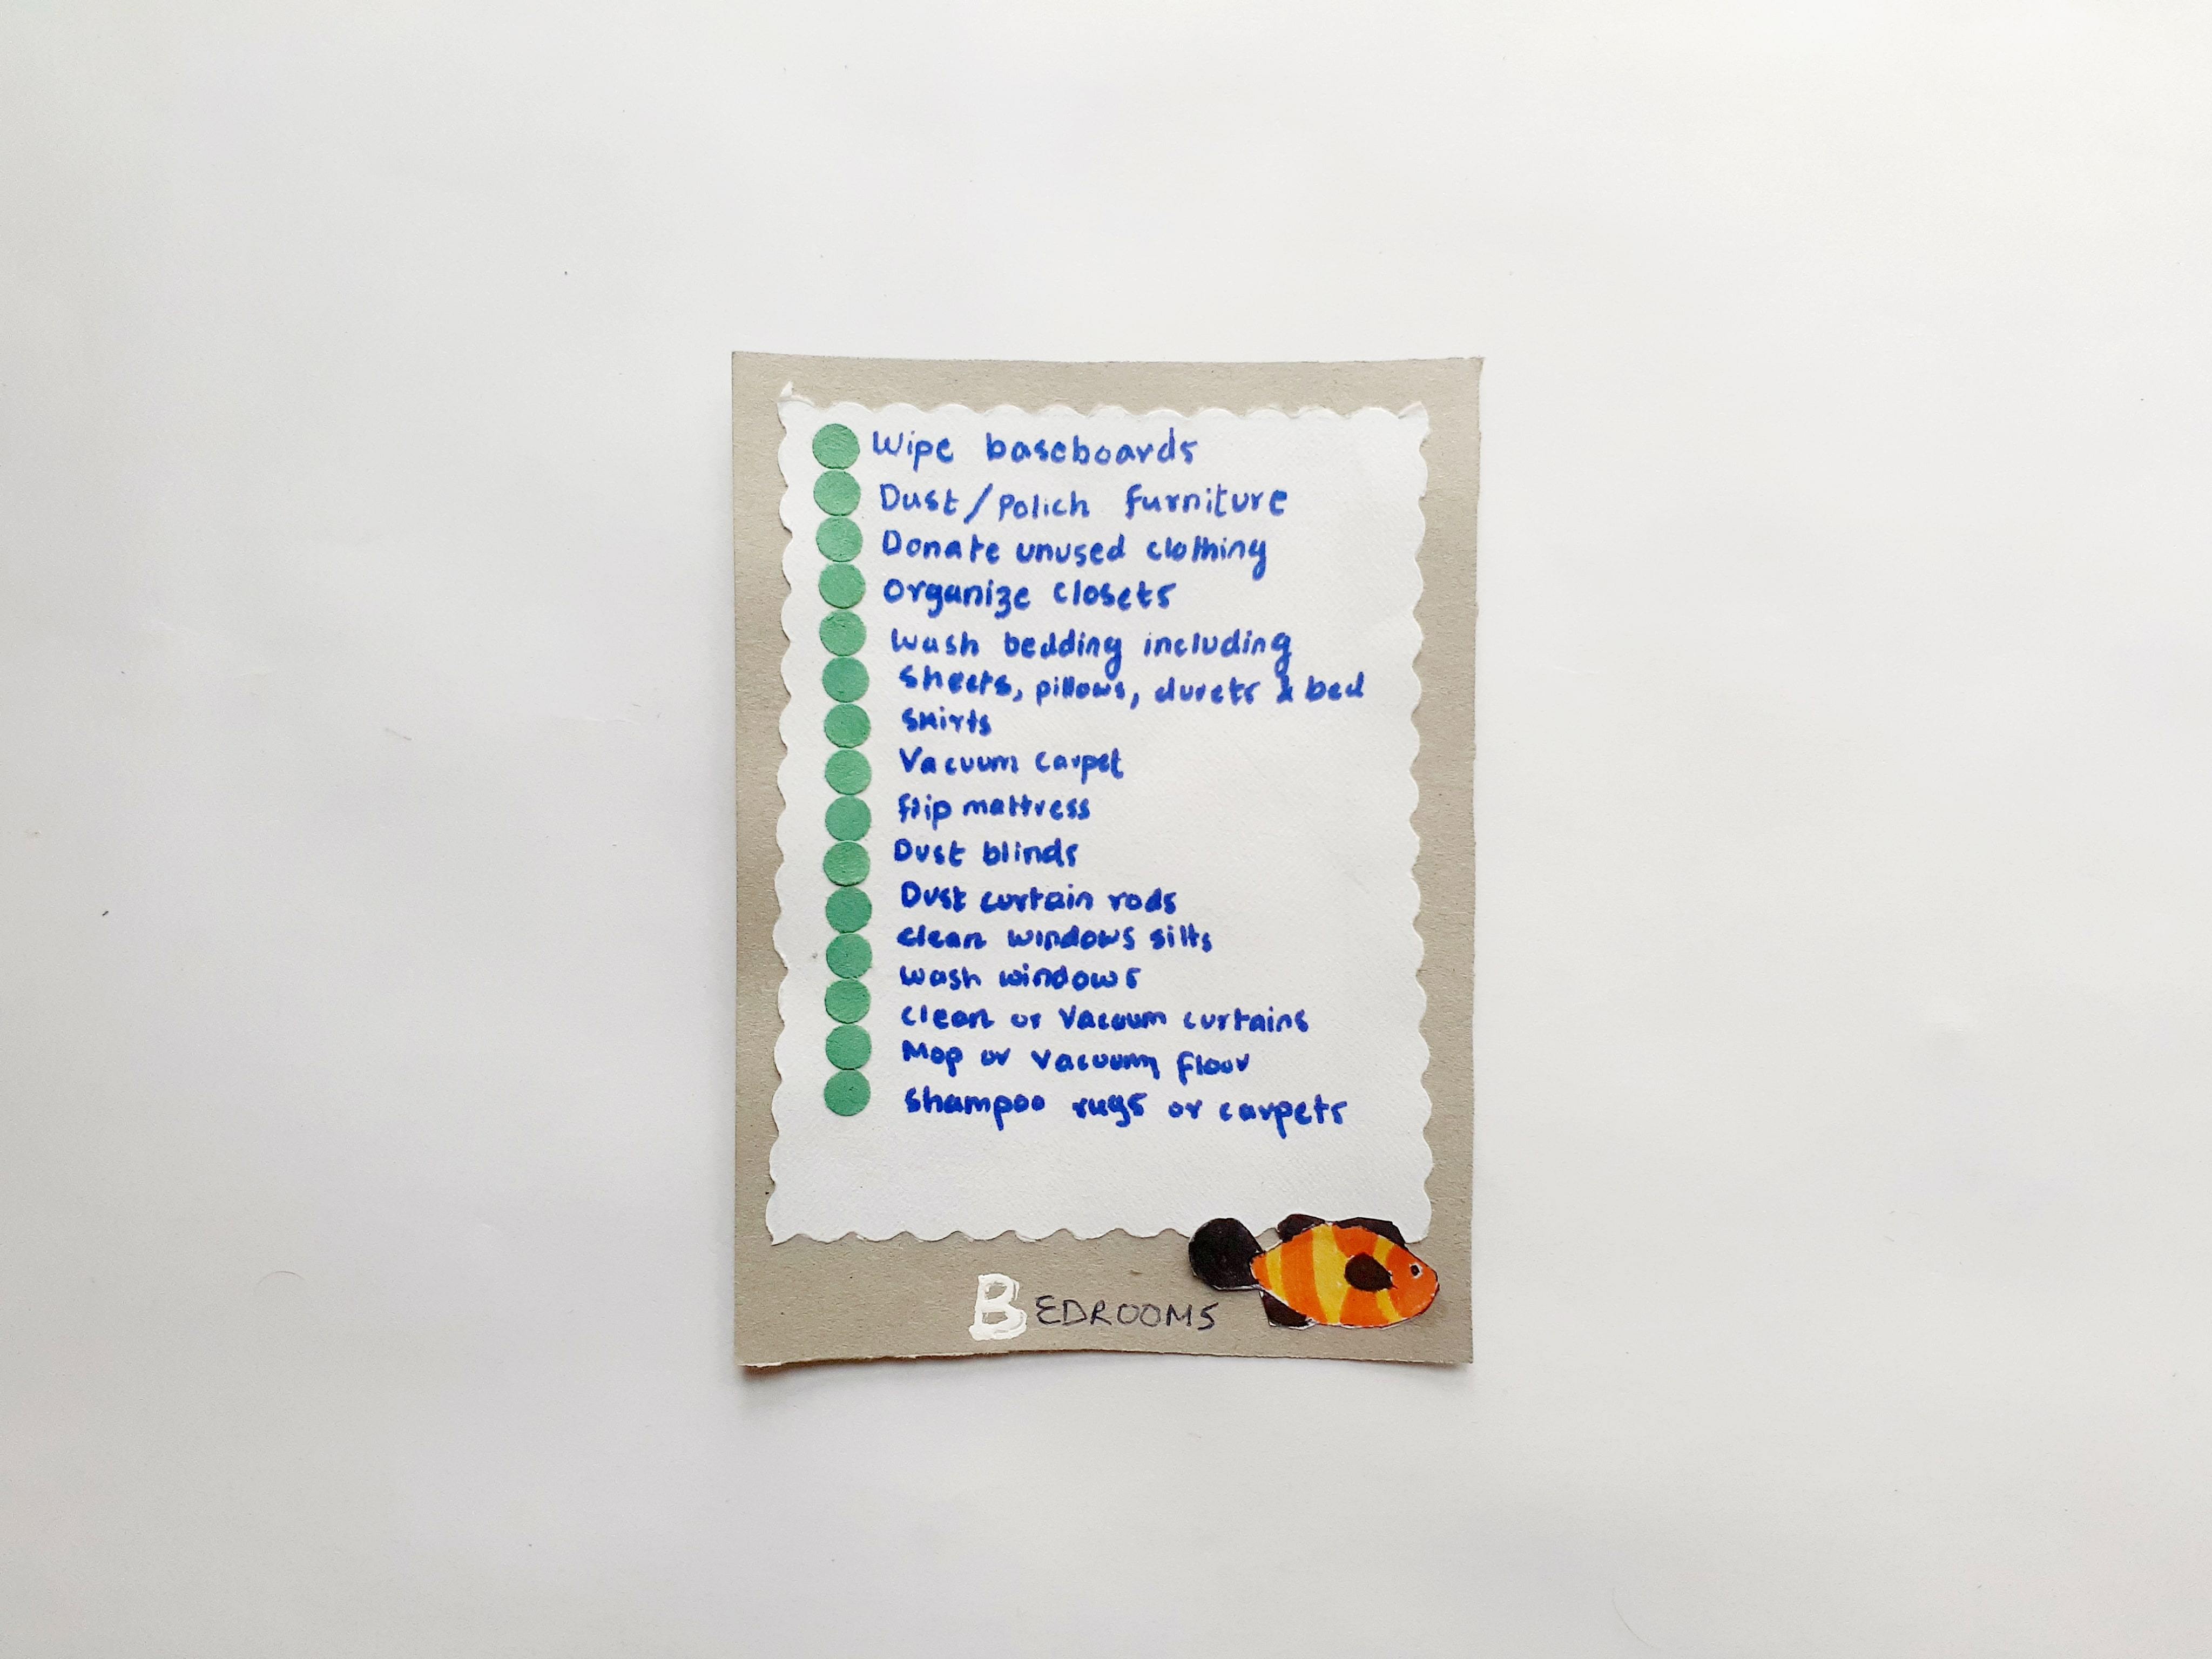 Wipe baseboards
Dust/Polich furniture
Donate unused clothing
Organize closets
Wash bedding including
sheets, pillows, duvets & bed
skirts
Vacuum carpet
flip mattress
Dust blinds
Dust curtain rods
clean windows sills
wash windows
clean or vacuum curtains
Mop or vacuum floor
shampoo rugs or carpets
BEDROOMS